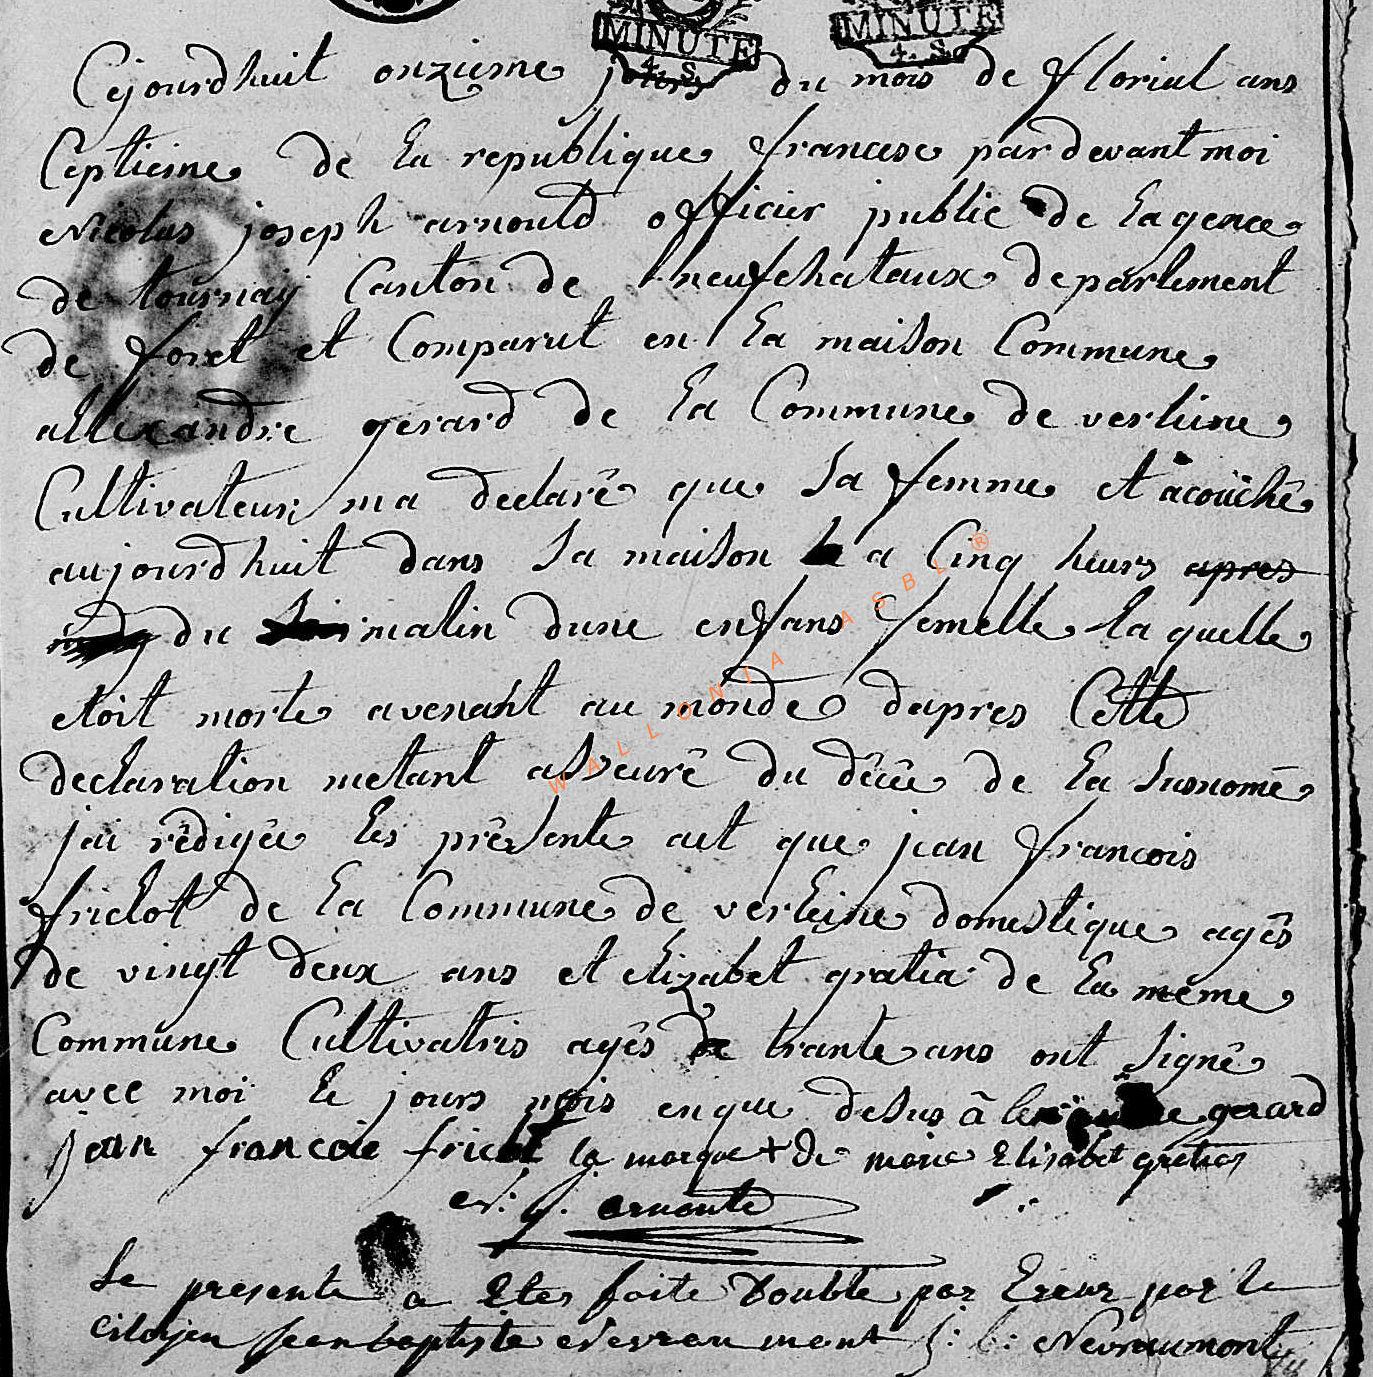 MINUTE MINUTE
4. S. 4. S.
Cejourdhuit onzieme jours du mois de florial ans
Ceptieme de la republique francese pardevant moi
Nicolas joseph arnould officier public de lagence
de tournay Canton de neufchataux departement
de foret et Comparut en la maison Commune
allexandre gerard de la Commune de verlaine
Cultivateur ma declarê que sa femme et acouchê
aujourdhuit dans sa maison a Cinq heurs apres
du matin dune enfans femelle la quelle
etoit morte avenant au monde dapres Cette
declaration metant asseurê du dêcêe de la susnomê
jai rêdigêe les prêsente act que jean francois
friclot de la Commune de verleine domestique agês
de vingt deux ans et elizabet gratia de la même
Commune Cultivatris agês de trante ans ont signê
avec moi le jours mois enque desus gerard
jean francoie la marque + de marie Elisabet
N. j. arnould
Le presente a Etes faite Double par Ereur par le
citoijen jean baptiste nevraumont j: b: Nevraumont
WALLONIA ASBL ®